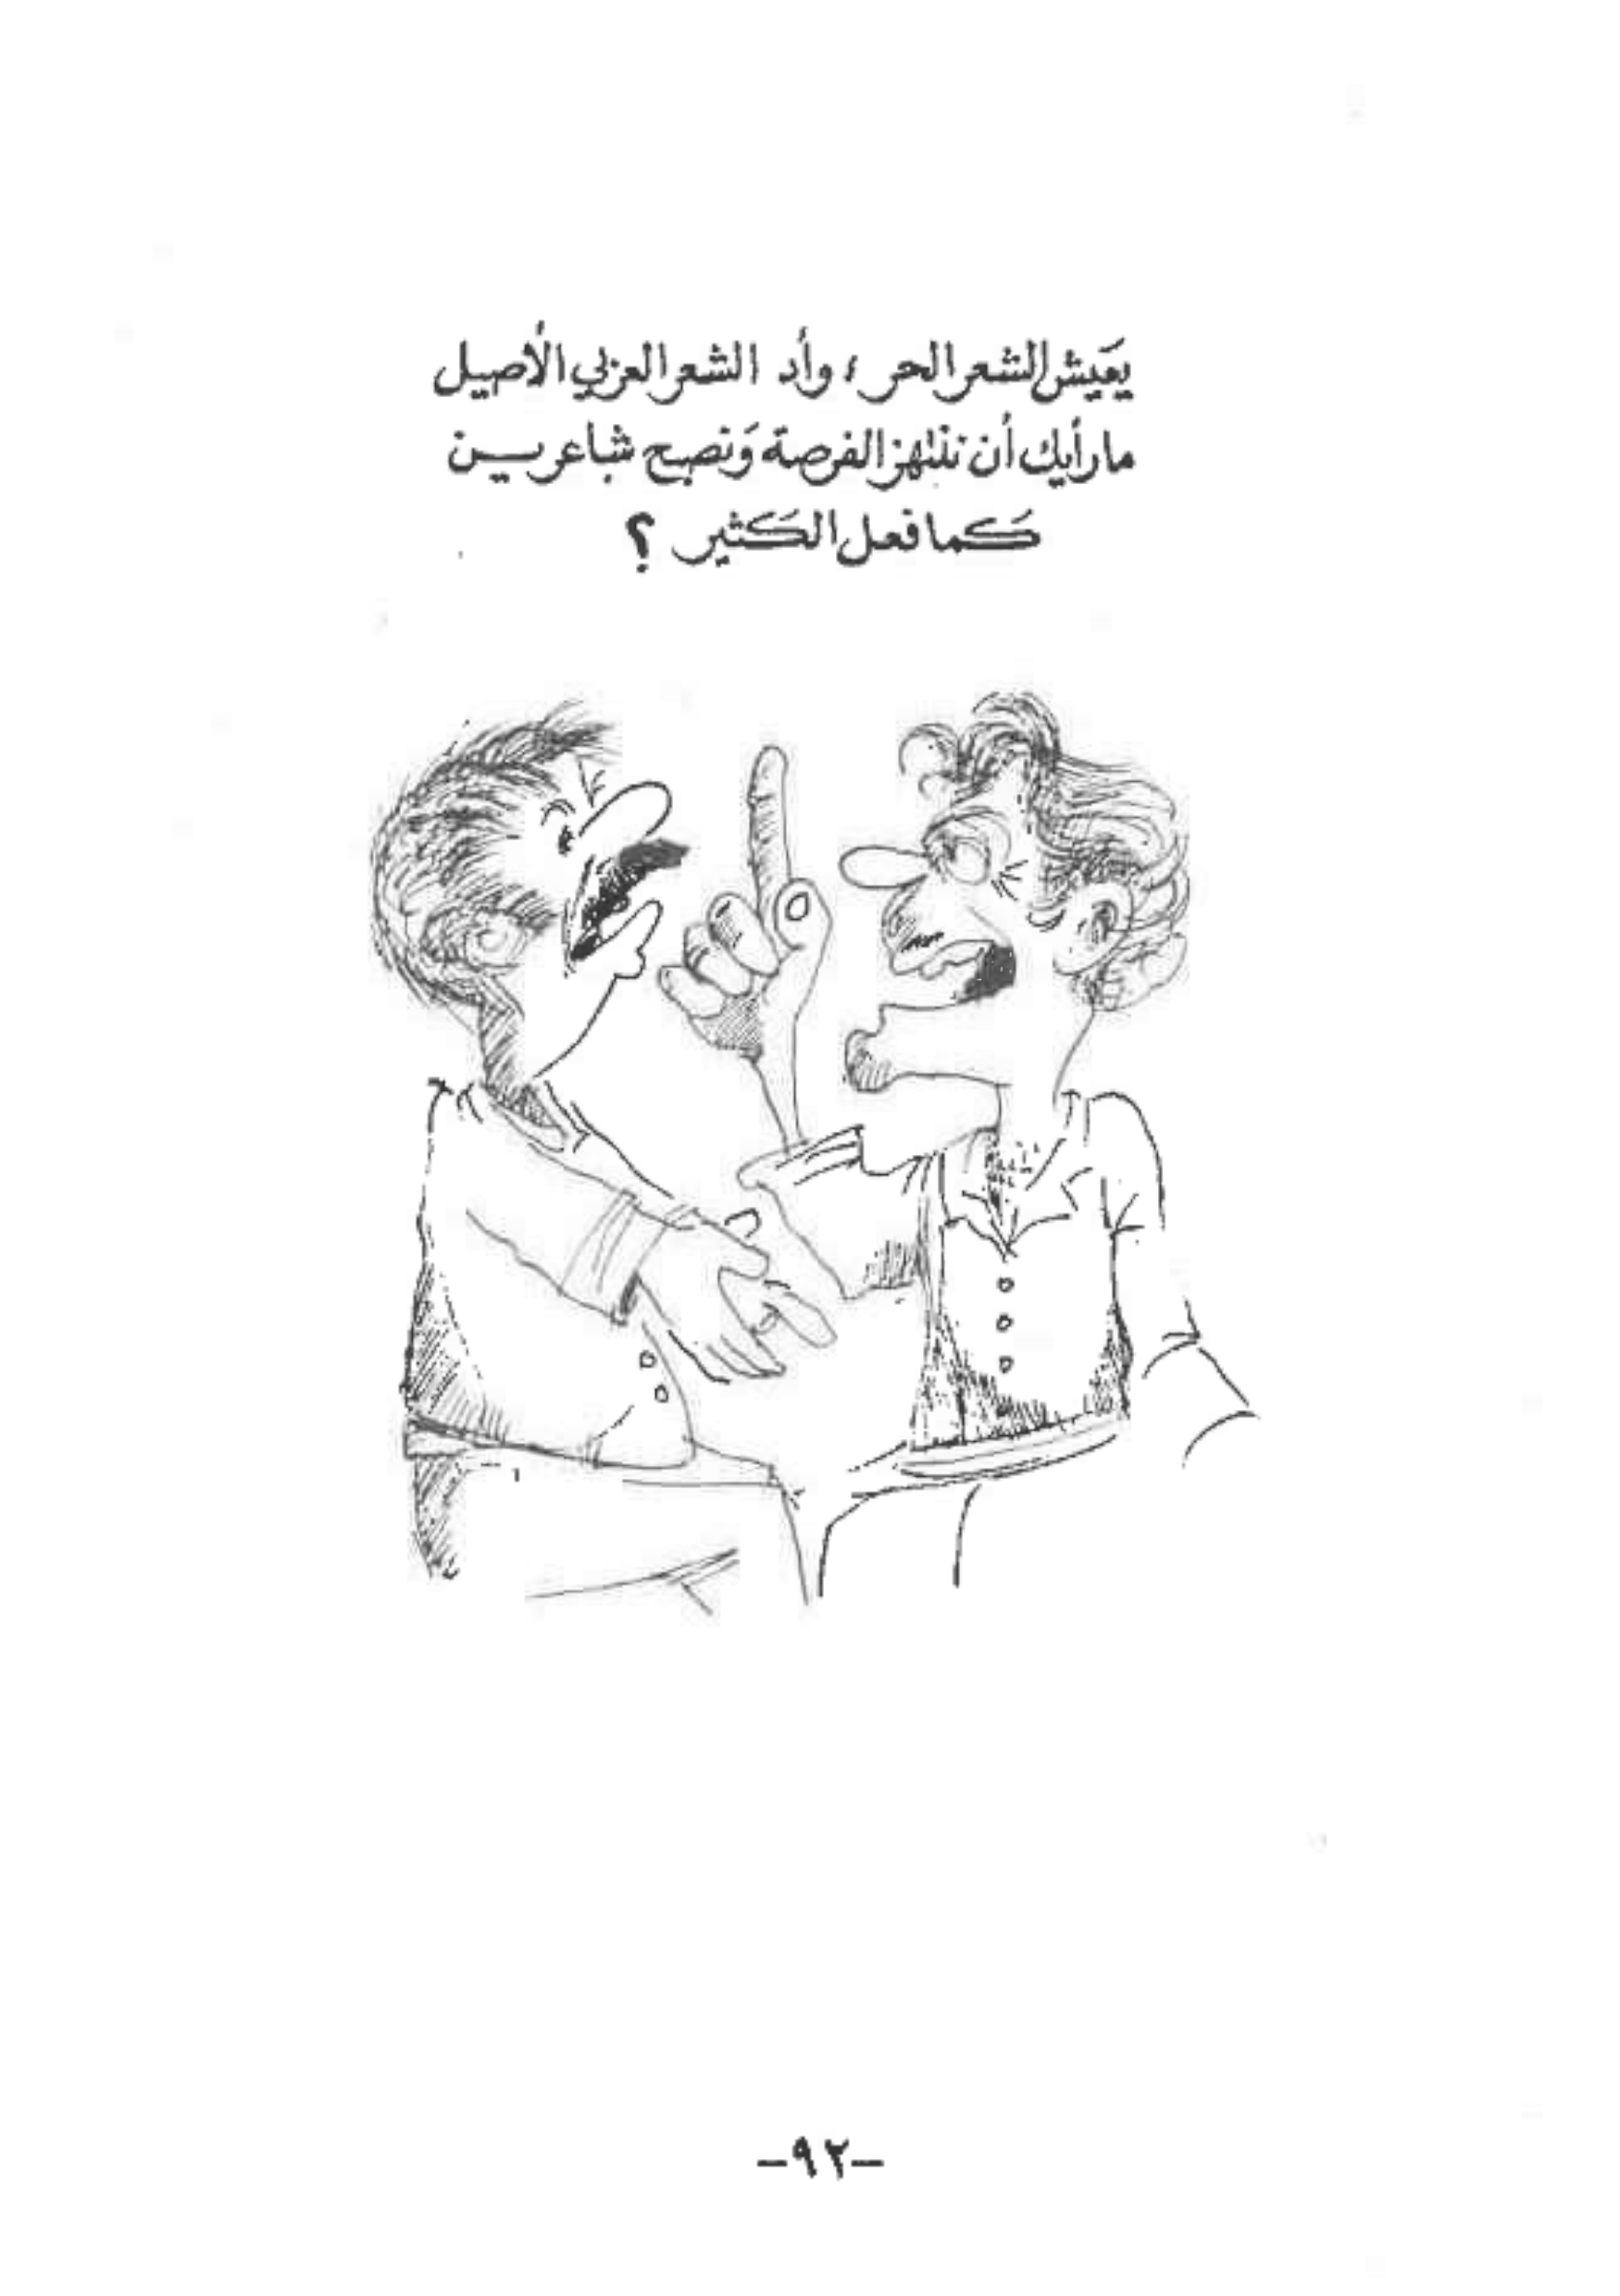 يَعَيش الشعر الحر، وأد الشعر العربي الأصيل
ما رأيك أن ننتهز الفرصة وَنصبح شاعريـن
كَما فعل الكَثير ؟
-٩٢-